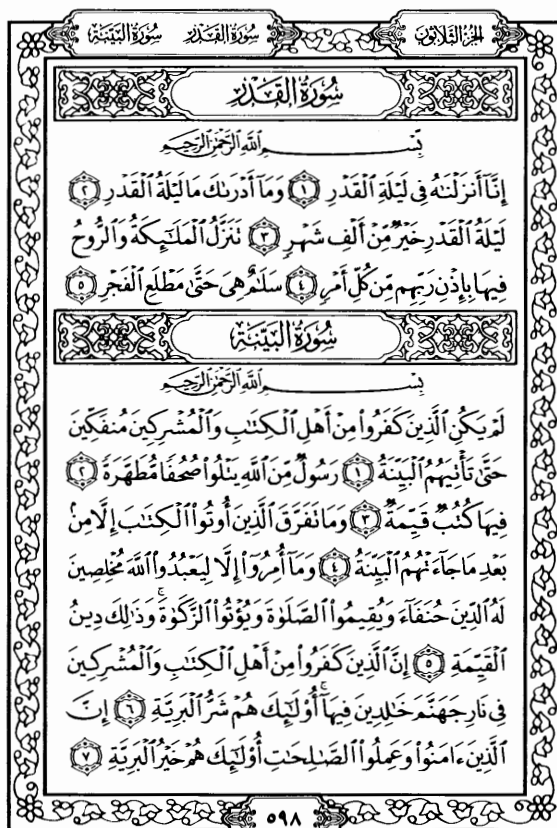 سُورَةُ البَيِّنَةِ سُورَةُ القَدْرِ الجُزْءُ الثَّلَاثُونَ
سُورَةُ القَدْرِ
بِسْمِ ٱللَّهِ ٱلرَّحْمَٰنِ ٱلرَّحِيمِ
إِنَّآ أَنزَلْنَٰهُ فِى لَيْلَةِ ٱلْقَدْرِ ١ وَمَآ أَدْرَىٰكَ مَا لَيْلَةُ ٱلْقَدْرِ ٢
لَيْلَةُ ٱلْقَدْرِ خَيْرٌ مِّنْ أَلْفِ شَهْرٍ ٣ تَنَزَّلُ ٱلْمَلَٰٓئِكَةُ وَٱلرُّوحُ
فِيهَا بِإِذْنِ رَبِّهِم مِّن كُلِّ أَمْرٍ ٤ سَلَٰمٌ هِىَ حَتَّىٰ مَطْلَعِ ٱلْفَجْرِ ٥
سُورَةُ البَيِّنَةِ
بِسْمِ ٱللَّهِ ٱلرَّحْمَٰنِ ٱلرَّحِيمِ
لَمْ يَكُنِ ٱلَّذِينَ كَفَرُوا۟ مِنْ أَهْلِ ٱلْكِتَٰبِ وَٱلْمُشْرِكِينَ مُنفَكِّينَ
حَتَّىٰ تَأْتِيَهُمُ ٱلْبَيِّنَةُ ١ رَسُولٌ مِّنَ ٱللَّهِ يَتْلُوا۟ صُحُفًا مُّطَهَّرَةً ٢
فِيهَا كُتُبٌ قَيِّمَةٌ ٣ وَمَا تَفَرَّقَ ٱلَّذِينَ أُوتُوا۟ ٱلْكِتَٰبَ إِلَّا مِنۢ
بَعْدِ مَا جَآءَتْهُمُ ٱلْبَيِّنَةُ ٤ وَمَآ أُمِرُوٓا۟ إِلَّا لِيَعْبُدُوا۟ ٱللَّهَ مُخْلِصِينَ
لَهُ ٱلدِّينَ حُنَفَآءَ وَيُقِيمُوا۟ ٱلصَّلَوٰةَ وَيُؤْتُوا۟ ٱلزَّكَوٰةَ ۚ وَذَٰلِكَ دِينُ
ٱلْقَيِّمَةِ ٥ إِنَّ ٱلَّذِينَ كَفَرُوا۟ مِنْ أَهْلِ ٱلْكِتَٰبِ وَٱلْمُشْرِكِينَ
فِى نَارِ جَهَنَّمَ خَٰلِدِينَ فِيهَآ ۚ أُو۟لَٰٓئِكَ هُمْ شَرُّ ٱلْبَرِيَّةِ ٦ إِنَّ
ٱلَّذِينَ ءَامَنُوا۟ وَعَمِلُوا۟ ٱلصَّٰلِحَٰتِ أُو۟لَٰٓئِكَ هُمْ خَيْرُ ٱلْبَرِيَّةِ ٧
٥٩٨